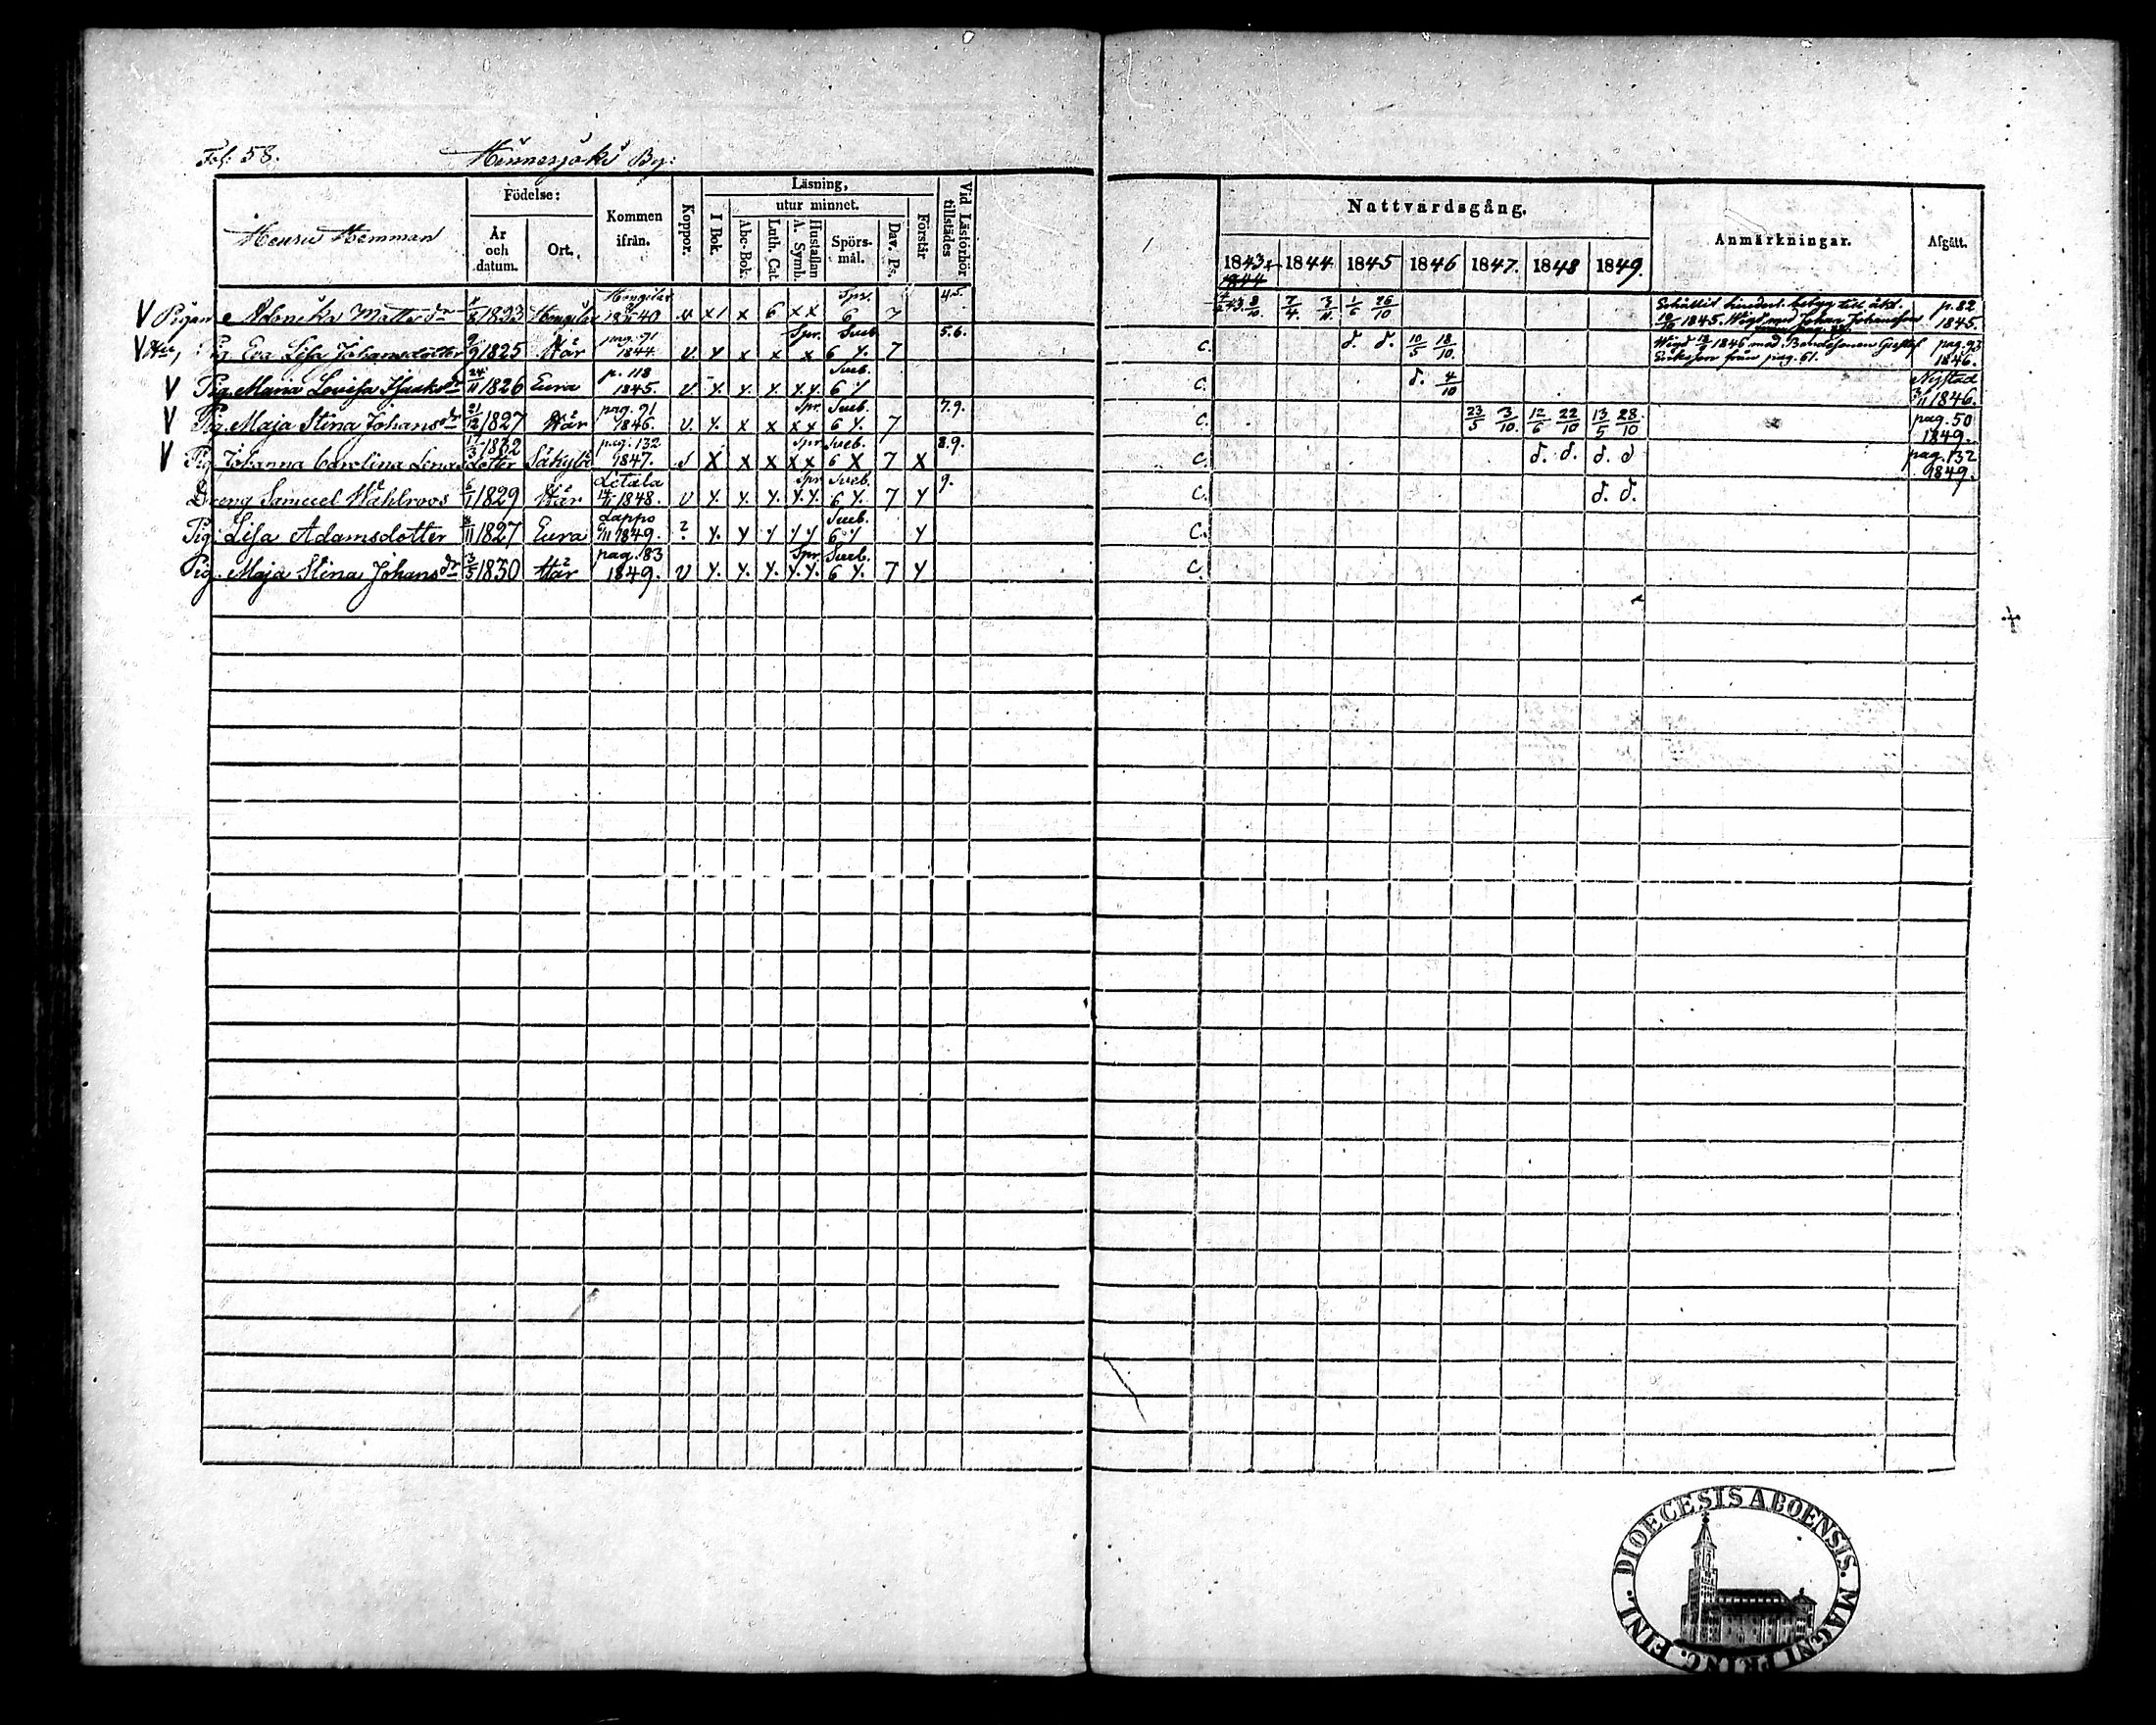 Fol: 58. Hinnerjoki By:
Födelse: Läsning, utur minnet.
Hemman År och datum. Ort. Kommen ifrån. Koppor. I Bok. Abc-Bok. Luth. Cat. Hustaflan A. Symb. Spörsmål. Dav. Ps. Förstår Vid Läsförhör tillstädes
Nattvardsgång. Anmärkningar. Afgått.
1843 1844 1845 1846 1847. 1848 1849.
V Pigan Matts dr 1823 1840 x 1 x 6 x x Spr. 6 7 4.5. 7/4. 3/11 1/6 26/10 hinderl. betyg till äkt. p. 82
1845. Wigd med Johan Johansson 1845.
V Pig. Eva Lisa Johansdotter 9/9 1825 Här pag. 91 1844. v. y x x x Spr. Sveb. 6 y. 7 5.6. c. d. d. 10/5 18/10 Wigd 1846 med Bondesonen Gustaf pag. 93
Eriksson från pag. 61. 1846.
V Pig. Maria Lovisa Isaks dr 24/11 1826 Eura p. 118 1845. v. y. y. y. y. y. Sveb. 6 y c. d. 4/10 Nystad
1846.
V Pig. Maja Stina Johans dr 21/12 1827 Här pag. 91 1846. v. y. x x x x Spr. Sveb. 6 y. 7 7.9. c. 23/5 3/10. 12/6 22/10 13/5 28/10 pag. 50
1849.
V Pig. Johanna Carolina Lenasdotter 17/3 1832 Säkylä pag. 132 1847. x x x x x Spr Sveb. 6 x 7 x 8.9. c. d. d. d. d pag. 132
1849.
Dreng Samuel Wahlroos 6/1 1829 Här Letala 14/11 1848. v y. y. y. y. y. Spr Sveb. 6 y. 7 y 9. c. d. d.
Pig. Lisa Adamsdotter 1827 Eura Lappo 1849. ? y. y y y y Sveb. 6 y y c.
Pig. Maja Stina Johans dr 3/5 1830 Här pag. 83 1849. v y. y. y. y. y. Spr Sveb. 6 y. 7 y c.
DIOECESIS ABOENSIS. MAGNI PRINC. FINL.